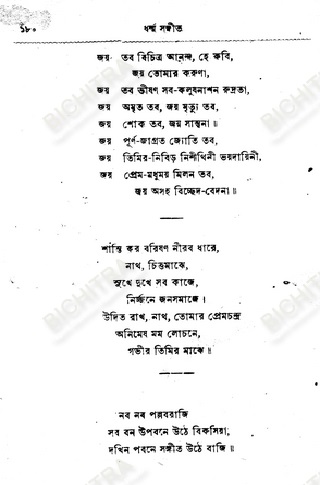 ১৮০
ধর্ম্ম সঙ্গীত
জয় তব বিচিত্র আনন্দ, হে কবি,
জয় তোমার করুণা,
জয় তব ভীষণ সব-কলুষনাশন রুদ্রতা,
জয় অমৃত তব, জয় মৃত্যু তব,
জয় শোক তব, জয় সান্ত্বনা॥
জয় পূর্ণ-জাগ্রত জ্যোতি তব,
জয় তিমির-নিবিড় নিশীথিনী ভয়দায়িনী,
জয় প্রেম-মধুময় মিলন তব,
জয় অসহ বিচ্ছেদ-বেদনা॥
শান্তি কর বরিষণ নীরব ধারে,
নাথ, চিত্তমাঝে,
সুখে দুখে সব কাজে,
নির্জ্জনে জনসমাজে।
উদিত রাখ, নাথ, তোমার প্রেমচন্দ্র
অনিমেষ মম লোচনে,
গভীর তিমির মাঝে॥
নব নব পল্লবরাজি
সব বন উপবনে উঠে বিকশিয়া,
দখিন পবনে সঙ্গীত উঠে বাজি॥
BICHITRA
BICHITRA
BICHITRA
BICHITRA